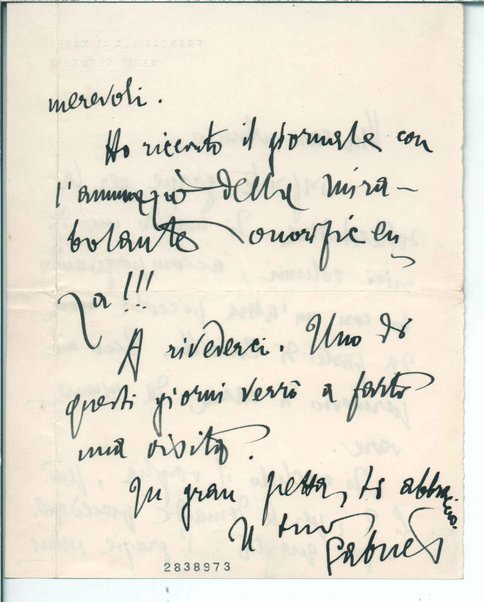 merevoli.
Ho ricevuto il giornale con
l'annunzio della mira-
bolante onorificen
za!!!
A rivederci. Uno di
questi giorni verrò a farti
una visita.
In gran fretta, ti abbraccio.
Il tuo
Gabriele
2838973